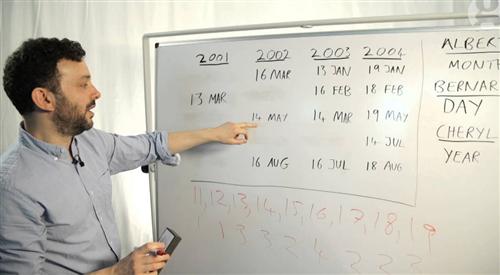 2001 2002 2003 2004
16 MAR 13 JAN 19 JAN
13 MAR 16 FEB 18 FEB
14 MAY 14 MAR 19 MAY
14 JUL
16 AUG 16 JUL 18 AUG
11, 12, 13, 14, 15, 16, 17, 18, 19
1 1 3 3 2 4 2 2 2
ALBERT
MONTH
BERNAR
DAY
CHERYL
YEAR